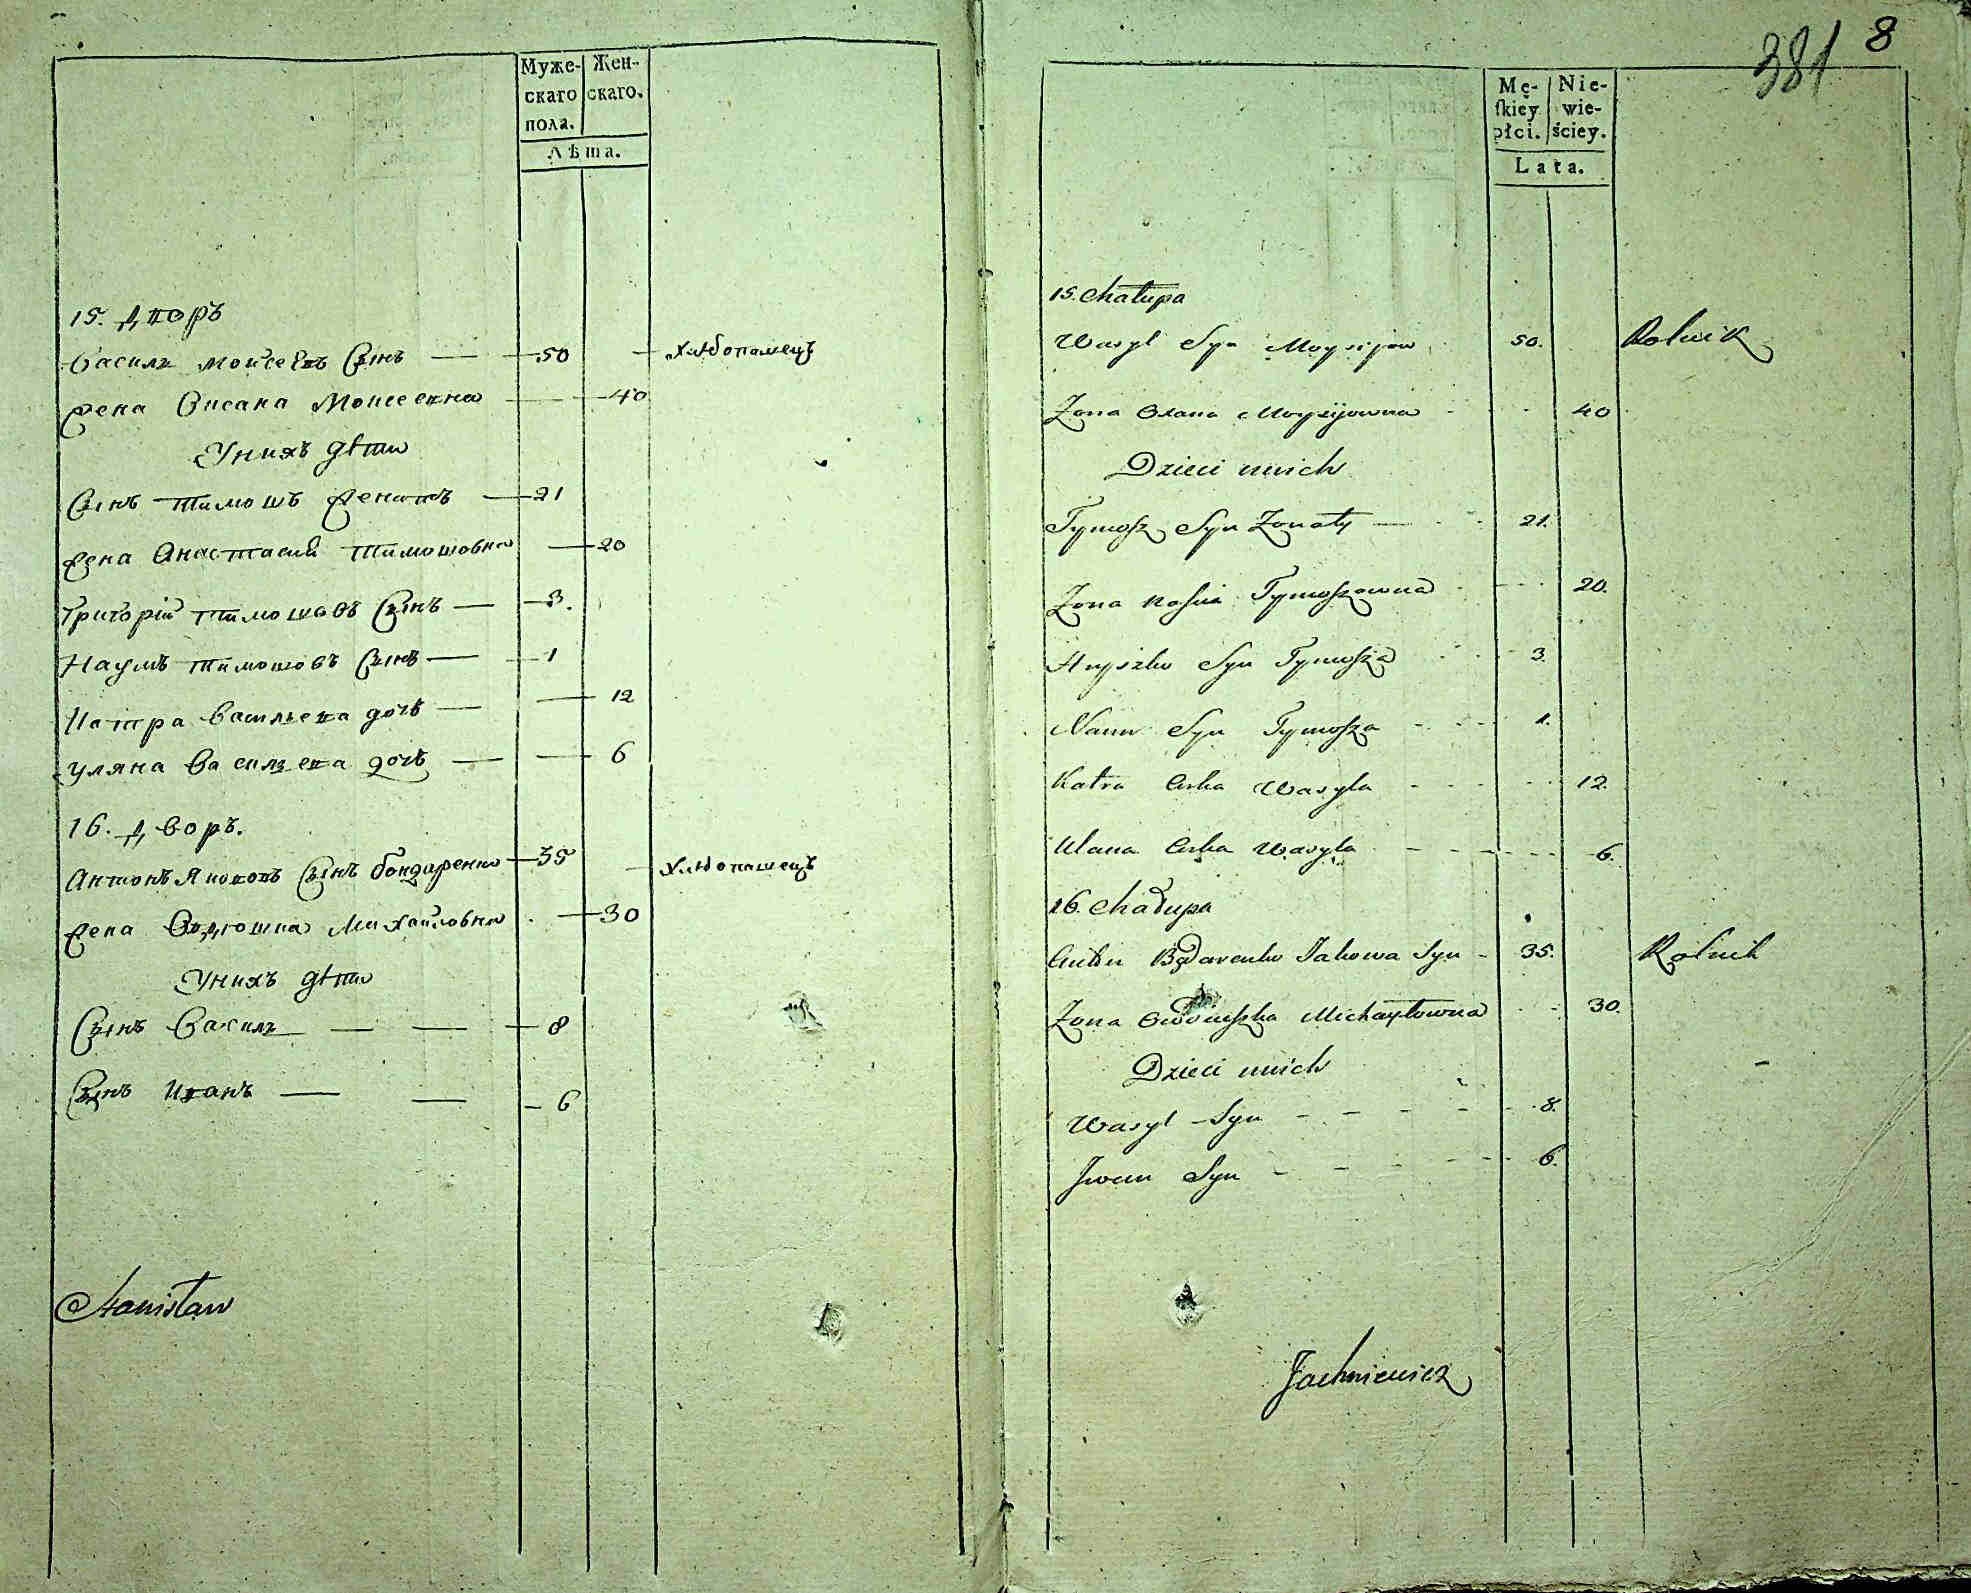 Муже-
скаго
пола.
Жен-
скаго.
Лѣта.
15. Дворъ
Василь Моисеевъ Сынъ — 50 — хлѣбопашецъ
Жена Оксана Моисеевна — 40
У нихъ дѣти
Сынъ Тимошъ Женатъ — 21
Жена Анастасия Тимошовна — 20
Григорій Тимошовъ Сынъ — 3.
Наумъ Тимошовъ Сынъ — 1
Катра Васильева дочь — 12
Уляна Васильева дочь — 6
16. Дворъ.
Антонъ Якововъ Сынъ Бондаренко — 35 — хлѣбопашецъ
Жена Овдюшка Михайловна — 30
У нихъ дѣти
Сынъ Василь — 8
Сынъ Иванъ — 6
Stanisław
381 8
Mę-
skiey
płci.
Nie-
wie-
ściey.
Lata.
15. Chałupa
Wasyl Syn Moysijow 50. Rolnik
Zona Oxana Moysijowna 40
Dzieci unich
Tymosz Syn Zonaty — 21.
Zona Nasia Tymoszowna 20.
Hryszko Syn Tymosza 3.
Naum Syn Tymosza 1.
Katra Curka Wasyla 12.
Ulana Curka Wasyla 6.
16. Chałupa
Anton Bądarenko Jakowa Syn - 35. Rolnik
Zona Owdiuszka Michayłowna 30.
Dzieci unich
Wasyl Syn 8.
Jwan Syn 6.
Jachniewicz